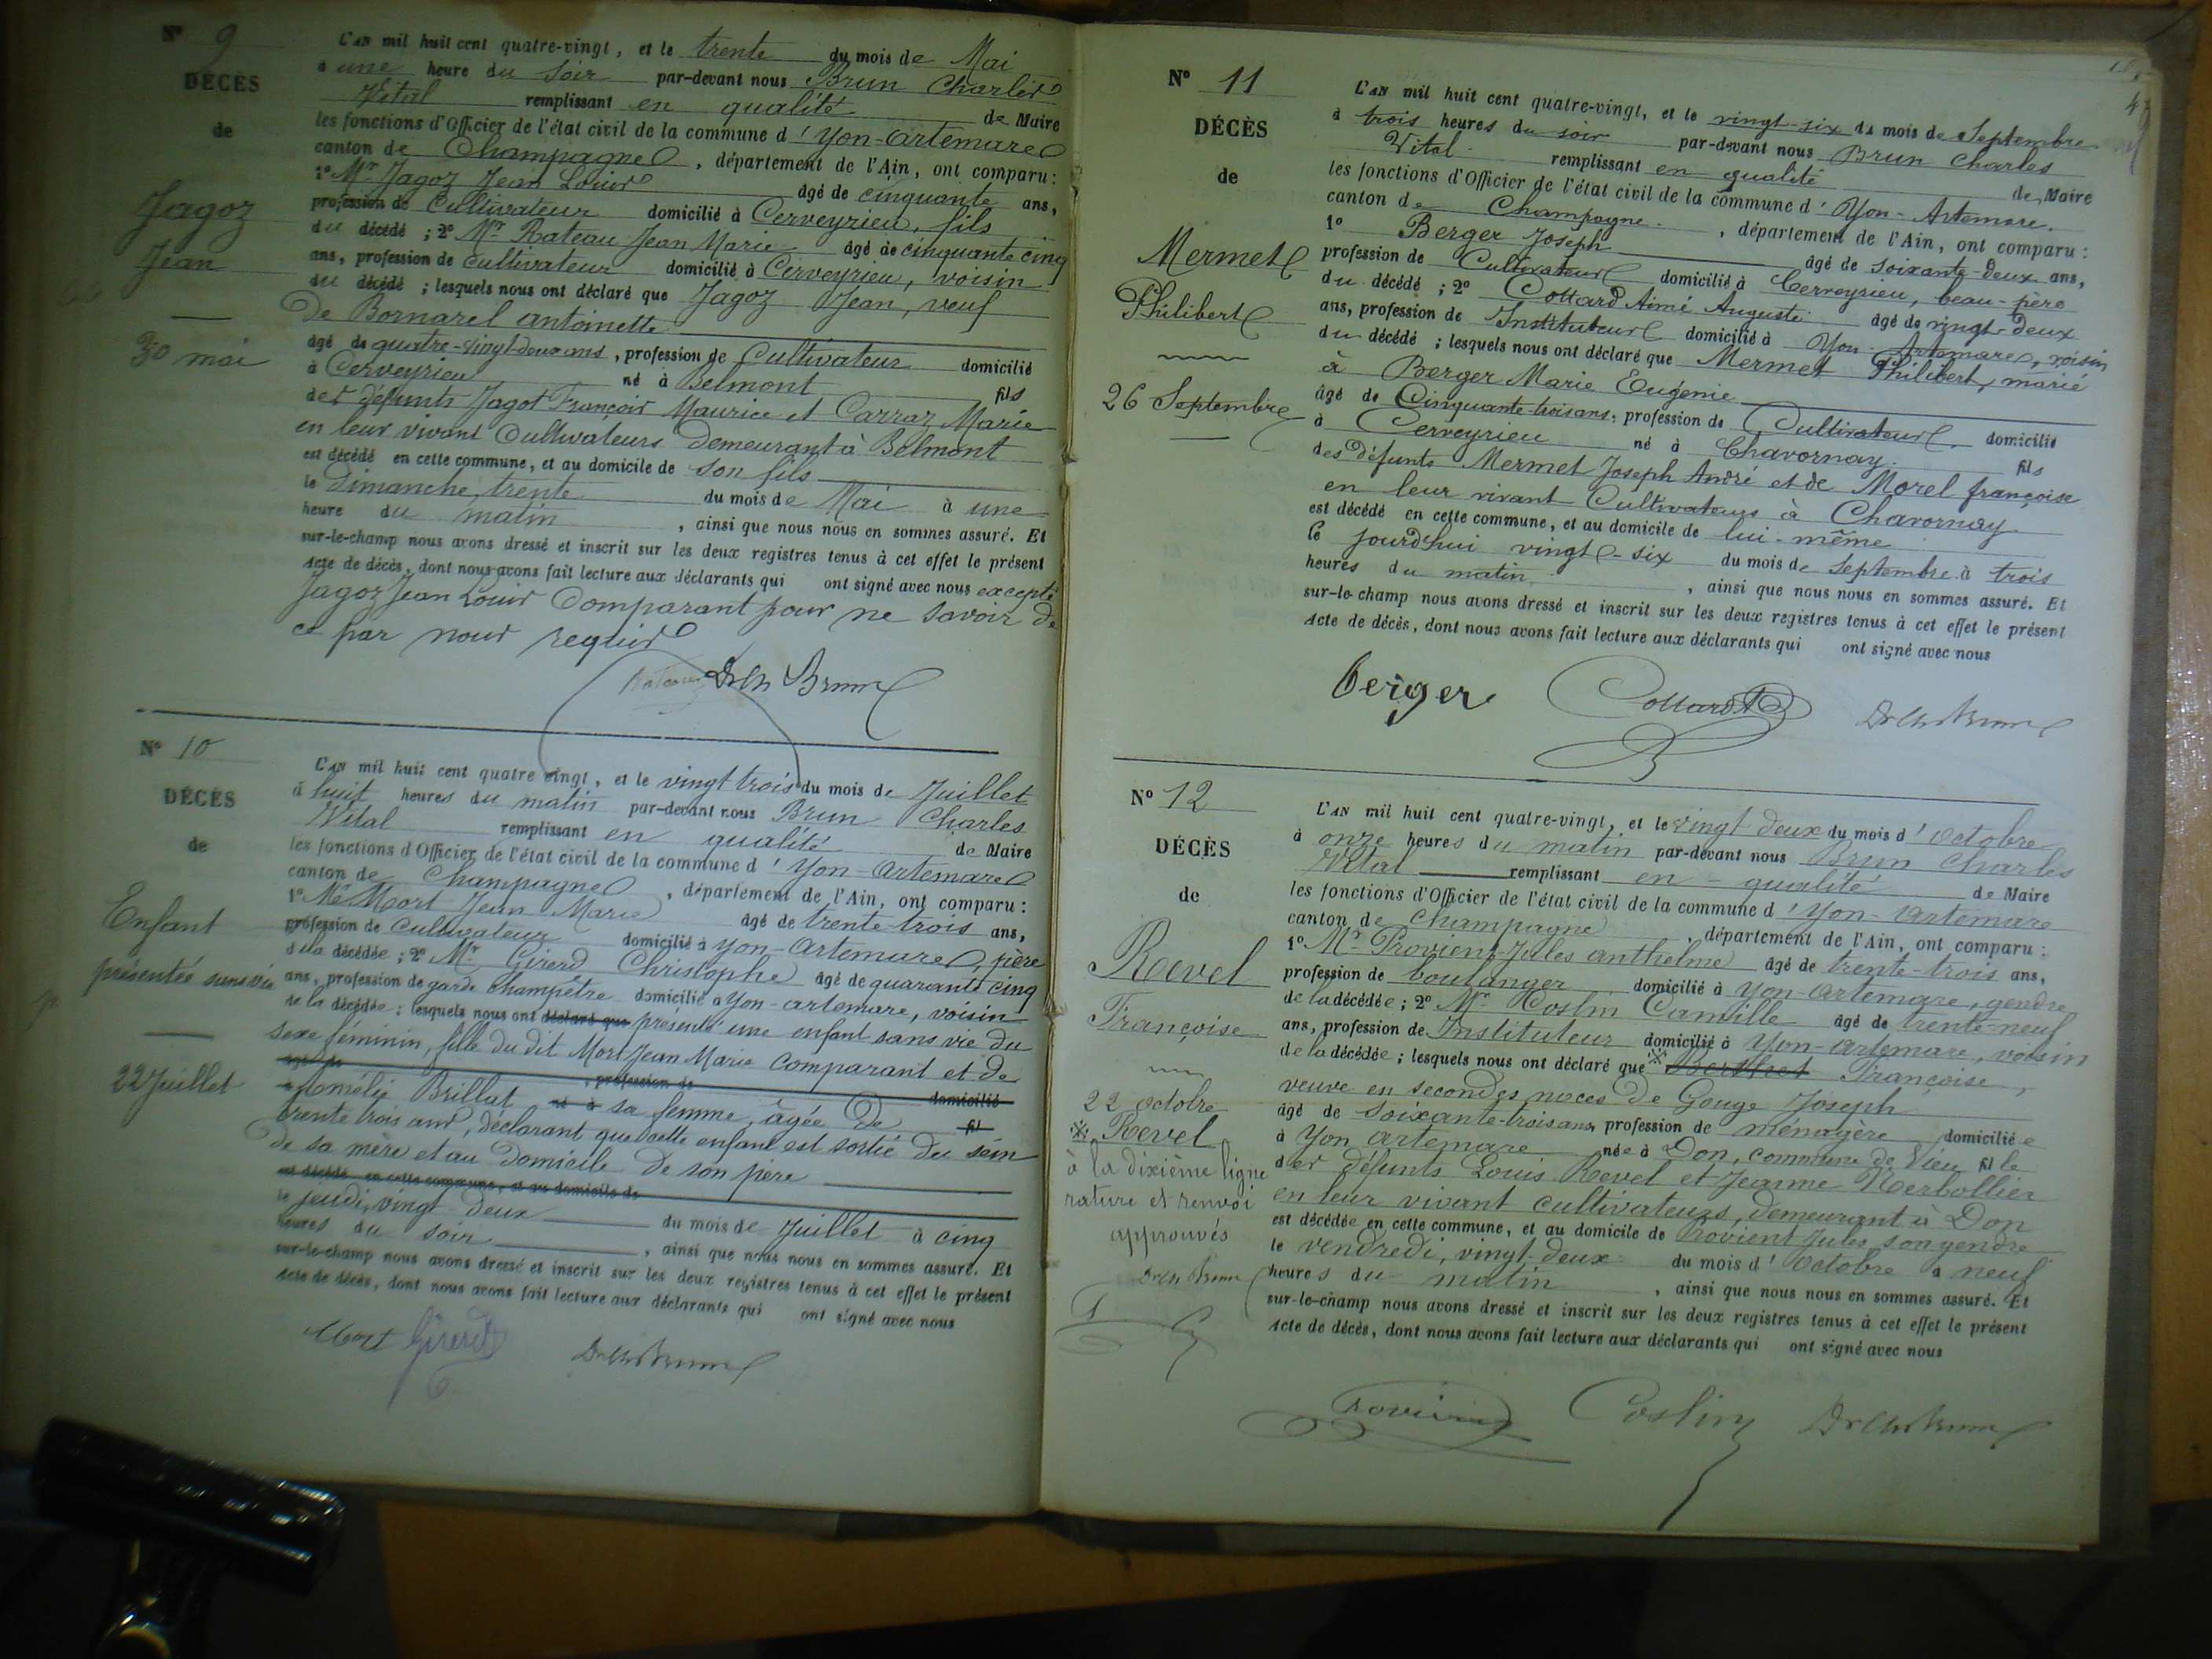 N° 9
DÉCÈS
de
Jagoz
Jean
30 mai
L'AN mil huit cent quatre-vingt, et le trente du mois de Mai
à une heure du soir par-devant nous Brun Charles
Vital remplissant en qualité de Maire
les fonctions d'Officier de l'état civil de la commune d'Yon-artemare
canton de Champagne, département de l'Ain, ont comparu:
1° Mr Jagoz Jean Louis âgé de cinquante ans,
profession de Cultivateur domicilié à Cerveyrieu, fils
du décédé ; 2° Mr Rateau Jean Marie âgé de cinquante cinq
ans, profession de cultivateur domicilié à Cerveyrieu, voisin
du décédé ; lesquels nous ont déclaré que Jagoz Jean, veuf
de Bornarel antoinette
âgé de quatre-vingt-deux ans, profession de Cultivateur domicilié
à Cerveyrieu né à Belmont fils
des défunts Jagot François Maurice et Carraz Marie
en leur vivant Cultivateurs demeurant à Belmont
est décédé en cette commune, et au domicile de son fils
le Dimanche, trente du mois de Mai à une
heure du matin, ainsi que nous nous en sommes assuré. Et
sur-le-champ nous avons dressé et inscrit sur les deux registres tenus à cet effet le présent
acte de décès, dont nous avons fait lecture aux déclarants qui ont signé avec nous excepté
Jagoz Jean Louis Comparant pour ne savoir de
ce par nous requis
Rateau Dr Ch Brun
N° 10
DÉCÈS
de
Enfant
présentée sans vie
22 Juillet
L'AN mil huit cent quatre vingt, et le vingt trois du mois de Juillet
à huit heures du matin par-devant nous Brun Charles
Vital remplissant en qualité de Maire
les fonctions d'Officier de l'état civil de la commune d'Yon-artemare
canton de Champagne, département de l'Ain, ont comparu:
1° Mr Mort Jean Marie âgé de trente-trois ans,
profession de Cultivateur domicilié à Yon-Artemare, père
de la décédée ; 2° Mr Girerd Christophe âgé de quarante cinq
ans, profession de garde champêtre domicilié à Yon-artemare, voisin
de la décédée ; lesquels nous ont déclaré que présenté une enfant sans vie du
sexe féminin, fille du dit Mort Jean Marie comparant et de
âgé de , profession de domicilié
à Amélie Brillat né à sa femme, âgée de fil
trente trois ans, déclarant que cette enfant est sortie du sein
de sa mère et au domicile de son père
est décédé en cette commune, et au domicile de
le jeudi, vingt-deux du mois de Juillet à cinq
heures du soir, ainsi que nous nous en sommes assuré. Et
sur-le-champ nous avons dressé et inscrit sur les deux registres tenus à cet effet le présent
acte de décès, dont nous avons fait lecture aux déclarants qui ont signé avec nous
Mort Girerd Dr Ch Brun
N° 11
DÉCÈS
de
Mermet
Philibert
26 Septembre
L'AN mil huit cent quatre-vingt, et le vingt-six du mois de Septembre
à trois heures du soir par-devant nous Brun Charles
Vital remplissant en qualité de Maire
les fonctions d'Officier de l'état civil de la commune d'Yon-Artemare.
canton de Champagne, département de l'Ain, ont comparu :
1° Berger Joseph âgé de soixante-deux ans,
profession de Cultivateur domicilié à Cerveyrieu, beau-père
du décédé ; 2° Cottard Aimé Auguste âgé de vingt-deux
ans, profession de Instituteur domicilié à Yon-Artemare, voisin
du décédé ; lesquels nous ont déclaré que Mermet Philibert, marié
à Berger Marie Eugénie
âgé de Cinquante-trois ans, profession de Cultivateur domicilié
à Cerveyrieu né à Chavornay fils
des défunts Mermet Joseph André et de Morel françoise
en leur vivant Cultivateurs à Chavornay
est décédé en cette commune, et au domicile de lui-même
le jourd'hui vingt-six du mois de Septembre à trois
heures du matin, ainsi que nous nous en sommes assuré. Et
sur-le-champ nous avons dressé et inscrit sur les deux registres tenus à cet effet le présent
acte de décès, dont nous avons fait lecture aux déclarants qui ont signé avec nous
berger Cottard A Dr Ch Brun
N° 12
DÉCÈS
de
Revel
Françoise
22 octobre
※ Revel
à la dixième ligne
rature et renvoi
approuvés
Dr Ch Brun
L'AN mil huit cent quatre-vingt, et le vingt-deux du mois d'octobre
à onze heures du matin par-devant nous Brun Charles
Vital remplissant en qualité de Maire
les fonctions d'Officier de l'état civil de la commune d'Yon-artemare
canton de Champagne, département de l'Ain, ont comparu :
1° Mr Provient Jules anthelme âgé de trente-trois ans,
profession de boulanger domicilié à Yon-artemare, gendre
de la décédée ; 2° Mr Coslin Camille âgé de trente-neuf
ans, profession de Instituteur domicilié à Yon-artemare, voisin
de la décédée ; lesquels nous ont déclaré que ※ Berthet Françoise,
veuve en secondes noces de Gouge Joseph
âgé de soixante-trois ans, profession de ménagère domiciliée
à Yon artemare née à Don, commune de Vieu fille
des défunts Louis Revel et Jeanne Nerbollier
en leur vivant cultivateurs, demeurant à Don
est décédée en cette commune, et au domicile de Provient Jules, son gendre
le vendredi, vingt-deux du mois d'octobre à neuf
heures du matin, ainsi que nous nous en sommes assuré. Et
sur-le-champ nous avons dressé et inscrit sur les deux registres tenus à cet effet le présent
acte de décès, dont nous avons fait lecture aux déclarants qui ont signé avec nous
Provient Coslin Dr Ch Brun